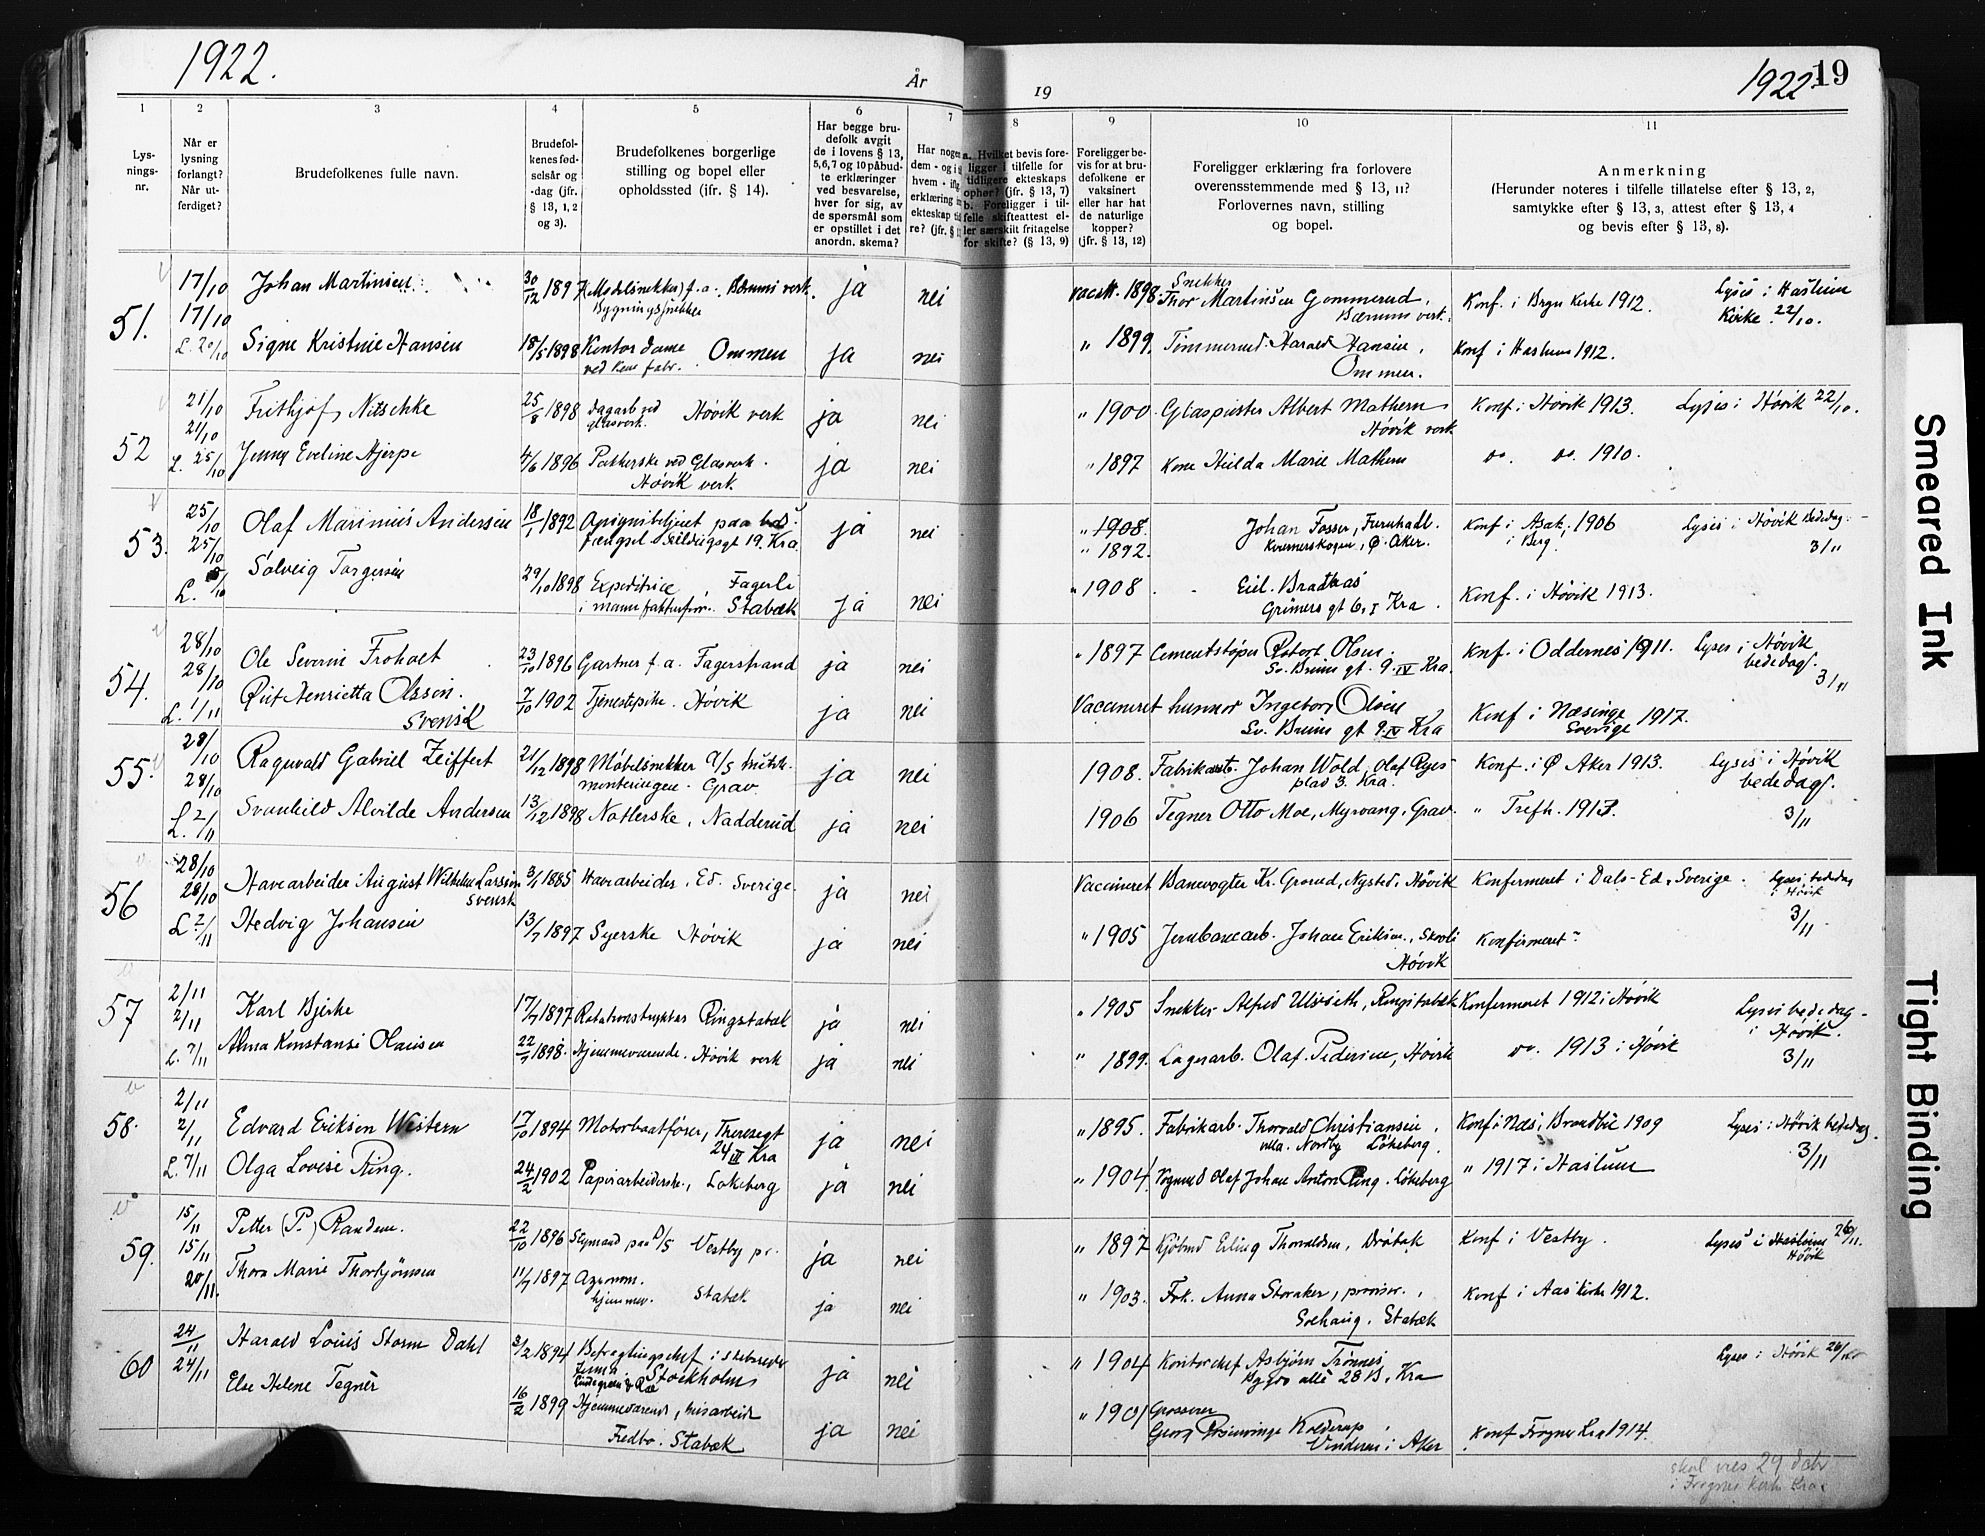 1922.
År
19
1922.
19
1
2
3
4
5
6
7
8
9
10
11
Lys-
nings-
nr.
Når er
lysning
forlangt?
Når ut-
ferdiget?
Brudefolkenes fulle navn.
Brudefol-
kenes fød-
selsår og
-dag (jfr.
§ 13, 1, 2
og 3).
Brudefolkenes borgerlige
stilling og bopel eller
opholdssted (jfr. § 14).
Har begge bru-
defolk avgit
de i lovens § 13,
5,6,7 og 10 påbud-
te erklæringer
ved besvarelse,
hver for sig, av
de spørsmål som
er opstillet i det
anordn. skema?
Har nogen
dem - og i
hvem - ifg.
erklæring
ekteskap
re? (jfr. §
a. Hvilket bevis fore-
ligger i tilfelle for
tidligere ekteskaps
ophør? (jfr. § 13, 7)
b. Foreligger i til-
felle skifteattest el-
ler særskilt fritagelse
for skifte? (§ 13, 9)
Foreligger be-
vis for at bru-
defolkene er
vaksinert
eller har hat
de naturlige
kopper?
(jfr. § 13, 12)
Foreligger erklæring fra forlovere
overensstemmende med § 13, 11?
Forlovernes navn, stilling
og bopel.
Anmerkning
(Herunder noteres i tilfelle tillatelse efter § 13, 2,
samtykke efter § 13, 3, attest efter § 13, 4
og bevis efter § 13, 8).
51.
17/10
17/10
L. 20/10
Johan Martinsen
30/12 1897
(Modelsnekker) f.a. Bærums verk.
Bygningssnekker
ja
nei
vacc. 1898
Snekker
Thor Martinsen Gommerud,
Bærums verk.
Konf. i Bryn kirke 1912.
Lyses i Haslum
Kirke 22/10.
Signe Kristine Hansen
18/5 1898
Kontordame
Ommen
ja
nei
" 1899.
Tømmermd. Harald Hansen,
Ommen.
Konf i Haslum 1912.
52
21/10
21/10
L. 25/10
Frithjof Nitschke
25/8 1898
dagarb ved
glasverk.
Høvik verk
ja
nei
" 1900.
Glaspuster Albert Mathern
Høvik verk
Konf. i Høvik 1913.
Lyses i Høvik 22/10.
Jenny Eveline Hjerpe
4/6 1896
Pakkerske ved Glasverk.
Høvik verk.
ja
nei
" 1897
Kone Hilda Marie Mathern
do. do. 1910.
53.
25/10
25/10
L. /10
Olaf Marinius Andersen
18/1 1892
Opsynsbetjent paa
fængsel 19. Kra.
ja
nei
" 1908.
" 1892.
Johan Fosser, Furuhadl.
Kvernerskogen, Ø. Aker.
Konf i Asak, 1906
i Berg.
Lyses i Høvik Bededag.
3/11
Solveig Torgersen
29/10 1898
Expeditrice Fagerli
i manufakturforr. Stabæk
ja
nei
" 1908
Eil. Bradhas
Grüners gt 6, I Kra.
Konf. i Høvik 1913.
54.
28/10
28/10
L. 1/11
Ole Severin Froholt
23/10 1896
Gartner f.a. Fagerstrand
ja
nei
" 1897
Cementstøper Robert Olsen.
Sv. Bruns gt. 9 IV Kra.
Knf. i Oddernes 1911.
Lyses i Høvik
bededag.
3/11
Rut Henrietta Olsson.
Svensk
7/10 1902
Tjenestepike. Høvik
ja
nei
Vaccineret
hunnor Ingeborg Olsen
Sv. Bruns gt 9 IV Kra
Konf i Næsinge 1917.
Sverige
55.
28/10
28/10
L. 2/11
Ragnvald Gabriel Zeiffert
21/12 1898
Møbelsnekker A/S
monteringen. Grav
ja
nei
1908.
Fabrikarb. Johan Wold, Olaf Ryes
plad 3. Kra.
Konf. i Ø Aker 1913.
Lyses i Høvik
bededag.
3/11
Svanhild Alvilde Andersen
13/12 1898
Natlerske, Nadderud
ja
nei
1906
Tegner Otto Moe, Myrvang, Grav.
" Trefh. 1913.
56
28/10
28/10
L 2/11
Havearbeider August Wilhelm Larsson
Svensk
3/1 1885
Havearbeider, Ed. Sverige.
ja
nei
Vaccineret
Banevogter Kr. Grorud, Nysted, Høvik
Konfirmeret i Dals-Ed, Sverige.
Lyses bededag
i Høvik
3/11
Hedvig Johansen
13/7 1897
Syerske Høvik
ja
nei
" 1905
Jernbanearb. Johan Eriksen, Skoli
Høvik
Konfirmeret
57
2/11
2/11
L. 7/11
Karl Bjerke
17/7 1897
Rotationstrykker Ringstabæk
ja
nei
" 1905
Snekker Alfred Ulriseth, Ringstabæk
Konfirmeret 1912 i Høvik
Lyses bededag
i Høvik.
3/11
Anna Konstanse Hansen
22/ 1898.
Hjemmeværende. Høvik verk
ja
nei
" 1899.
Lagerarb. Olaf Pedersen, Høvik
do. 1913 i Høvik
58.
2/11
2/11
L. 7/11
Edvard Eriksen Western
17/10 1894
Motorbaatfører, Theresegt
24 III Kra
ja
nei
" 1895.
Fabrikarb. Thorvald Christiansen,
villa. Nordby Løkeberg.
Konf i Næs, Brandbu 1909
Lyses i Høvik bededag.
3/11
Olga Lovise Ring.
24/2 1902
Papirarbeiderske, Løkeberg
ja
nei
" 1904.
Vognmd Olaf Johan Anton Ring. Løkeberg
" 1917 i Haslum
59.
15/11
15/11
20/11.
Petter (P.) Randem.
22/10 1896
Styrmand paa D/S Vestby pr.
ja
nei
" 1897
Kjøbmd Erling Thorvaldsen, Drøbak
Konf i Vestby.
Lyses i Haslum 26/11.
Høvik
Thora Marie Thorbjørnsen
11/7 1897
Agronom.
hjemmev. Stabæk
ja
nei
" 1903.
Frk. Anna Storaker, provisor,
Solhaug, Stabæk
Konf i Aas kirke 1912.
60
24/11
24/11
Harald Louis Storm Dahl
3/2 1894
Befragtningschef i skibsrederf
Stockholm
ja
nei
" 1904
Kontorchef Asbjørn Trønnes
Bygdø allé 28 B, Kra
Lyses i Høvik 26/11
Else Helene Tegnér
16/2 1899
Hjemmeværende, husarbeide
Fredbo. Stabæk
ja
nei
" 1901
Grosserer
Georg Prönninge Kolderup,
Vinderen i Aker
Konf Frogner Kra 1914.
skal vies 29 dec
i Frogner kirke Kra.
Smeared Ink
Tight Binding